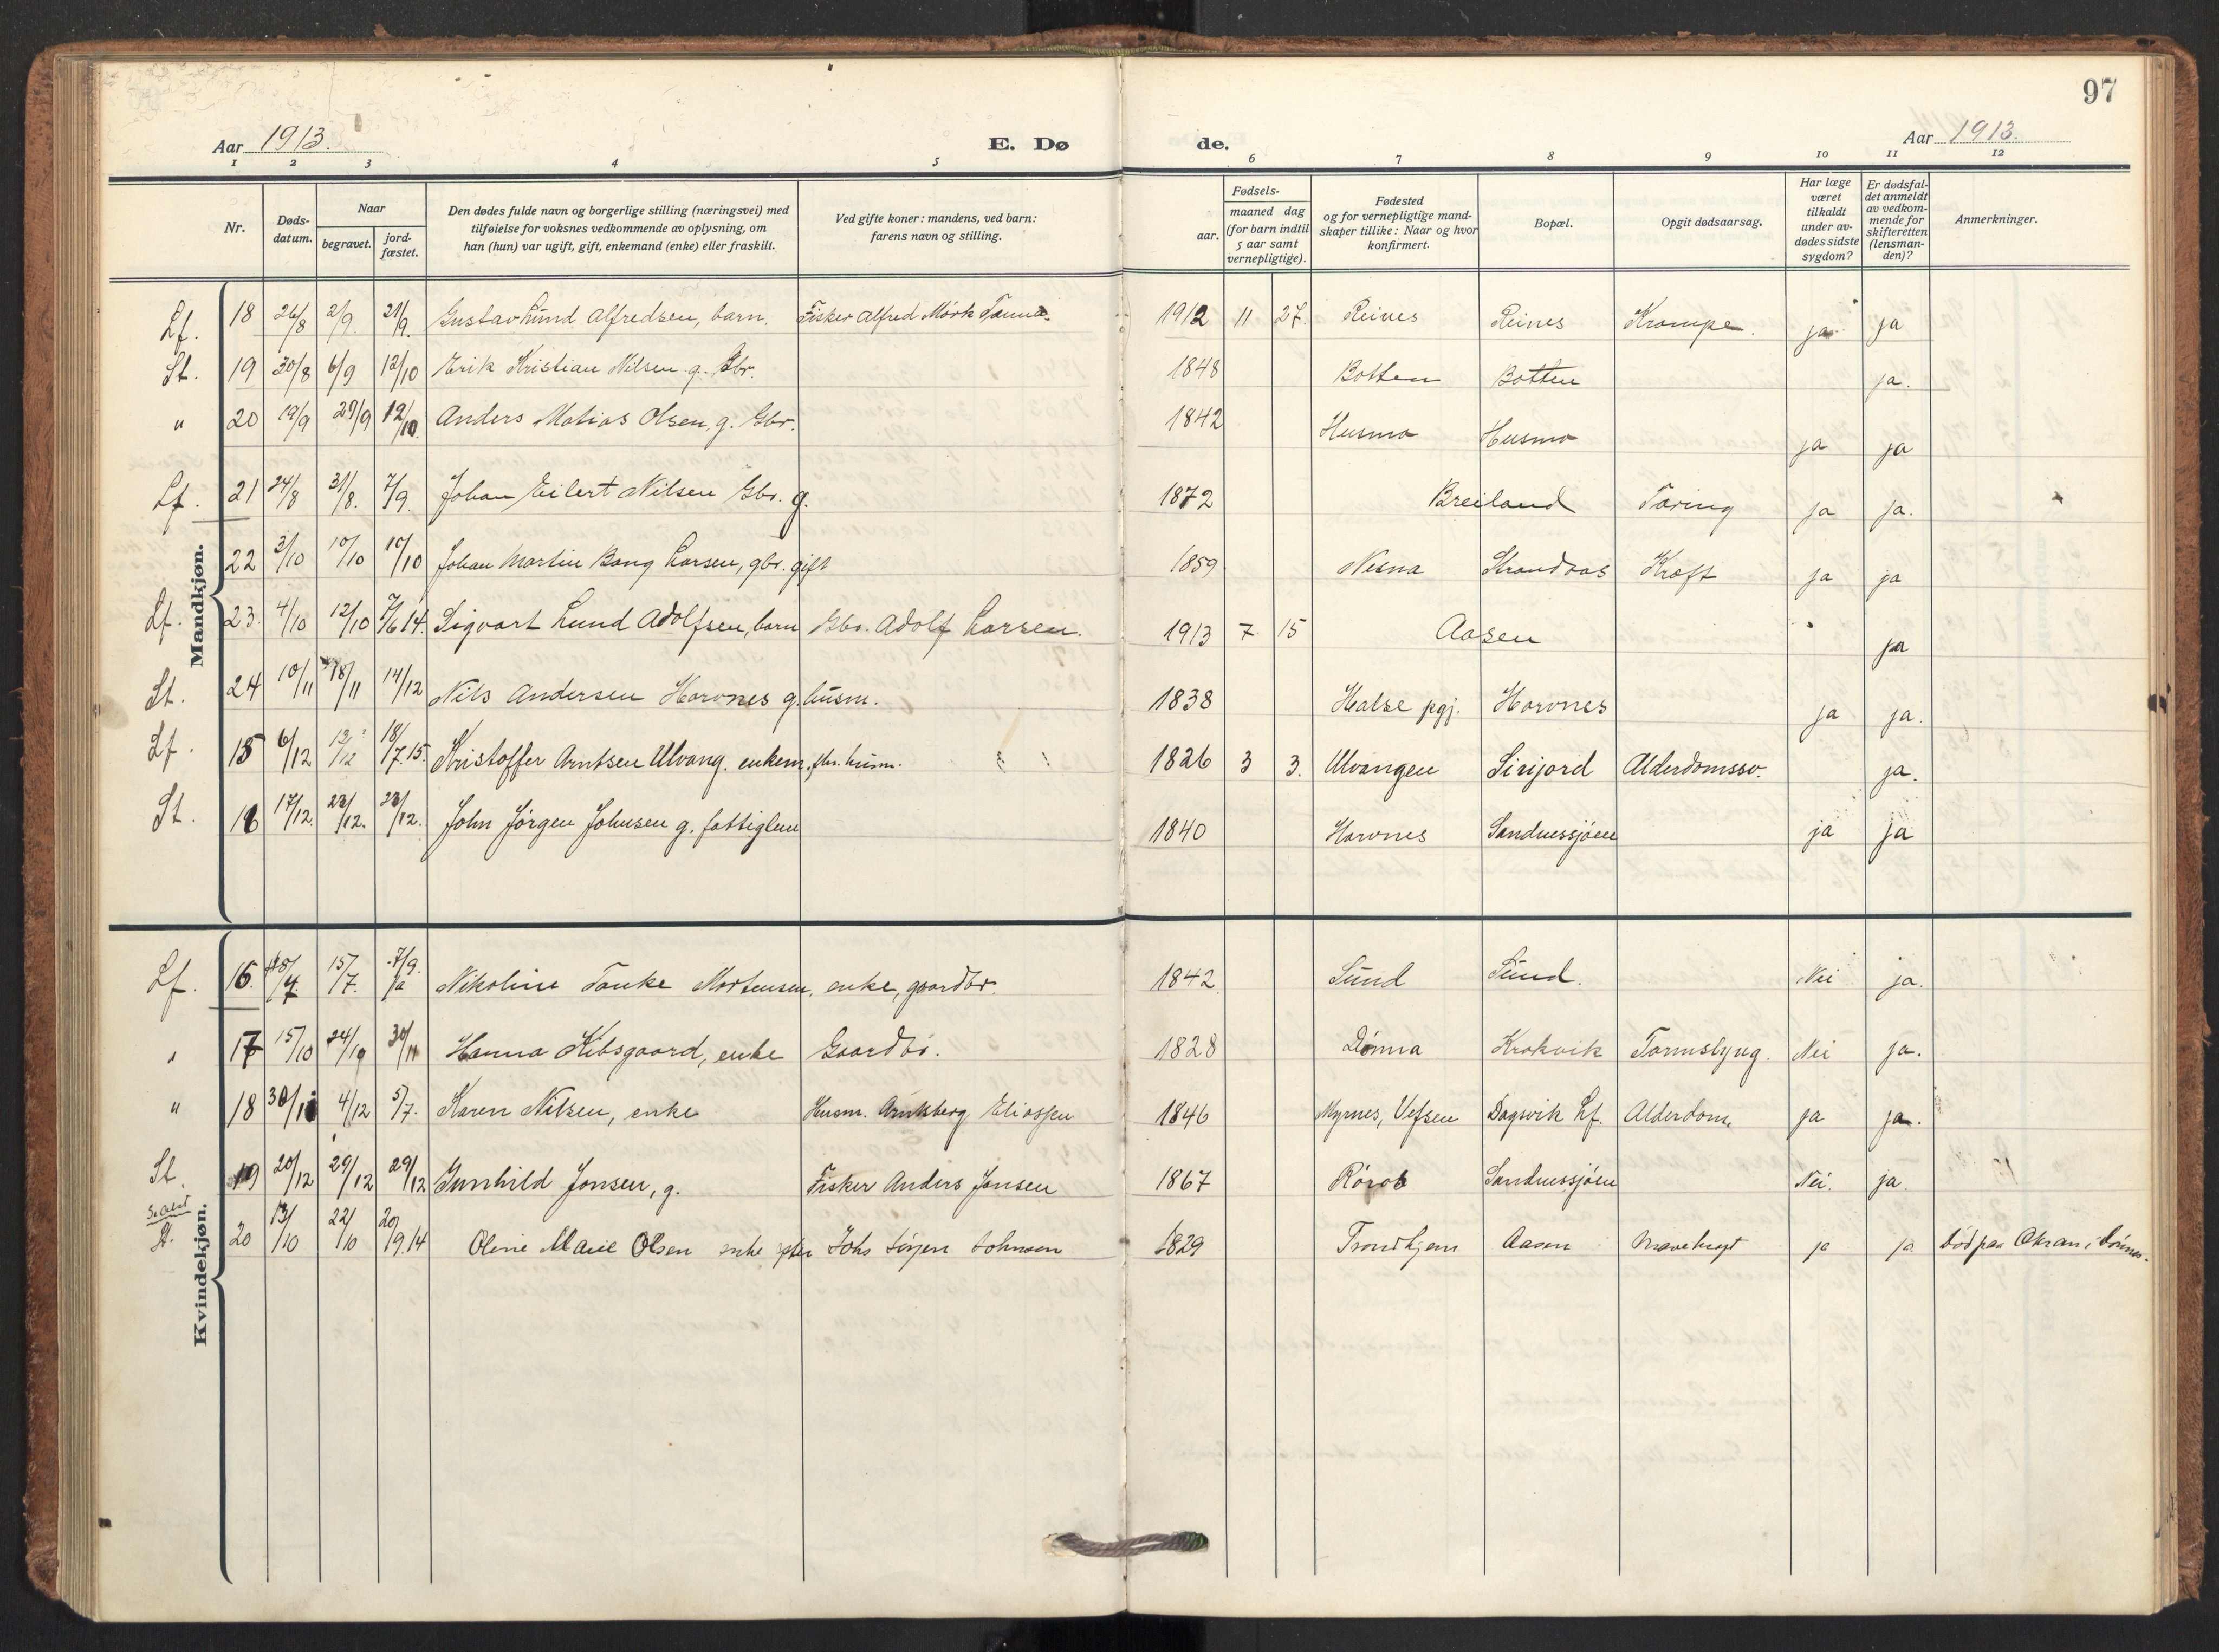 97
Aar 1913.
E. Dø
de.
Aar 1913.
1 2 3 4 5 6 7 8 9 10 11 12
Nr.
Døds-
datum.
Naar
begravet.
jord-
fæstet.
Den dødes fulde navn og borgerlige stilling (næringsvei) med
tilføielse for voksnes vedkommende av oplysning, om
han (hun) var ugift, gift, enkemand (enke) eller fraskilt.
Ved gifte koner: mandens, ved barn:
farens navn og stilling.
Fødsels-
aar.
maaned dag
(for barn indtil
5 aar samt
vernepligtige).
Fødested
og for vernepligtige mand-
skaper tillike: Naar og hvor
konfirmert.
Bopæl.
Opgit dødsaarsag.
Har læge
været
tilkaldt
under av-
dødes sidste
sygdom?
Er dødsfal-
det anmeldt
av vedkom-
mende for
skifteretten
(lensman-
den)?
Anmerkninger.
Mandkjøn.
Lf. 18 26/8 2/9. 21/9. Gustav Lund Alfredsen, barn. Fisker Alfred Mörk 1912 11 27. Reines Reines Krampe. ja ja
St. 19 30/8 6/9 12/10 Erik Kristian Nilsen g. Gbr. 1848 Botten Botten ja.
" 20 19/9 29/9 12/10. Anders Matias Olsen, g. Gbr. 1842 Husmo Husmo ja ja
Lf. 21 24/8 31/8. 7/9. Johan Eilert Nilsen Gbr. g. 1872 Breiland Tæring ja ja.
22 3/10 10/10 10/10 Johan Martin Bang Larsen, gbr. gift 1859 Nesna Strandaas Kræft ja ja
Lf. 23. 4/10 12/10 7/6 14. Sigvart Lund Adolfsen, barn Gbr. Adolf Larsen. 1913 7 15 Aasen ja
St. 24 10/11 18/11 14/12 Nils Andersen Horvnes g. husm. 1838 Halse pgj. Horvnes ja ja.
Lf. 15 6/12 13/12 18/7.15. Kristoffer Arntsen Ulvang. enkem. fhv. husm. 1826 3 3. Ulvangen Sirijord Alderdomssv. ja.
St. 16 17/12. 23/12. 23/12. John Jørgen Johnsen g. fattiglem 1840 Horvnes Sandnessjöen ja ja
Kvindekjøn.
Lf. 16. 8/7. 15/7. 7/9. Nikoline Tanke Mortensen, enke, gaardbr. 1842. Sund Sund. Nei ja.
" 17 15/10 24/10 30/11 Hanna Kibsgaard, enke Gaardbr. 1828 Dønna Krokvik Tarmslyng. Nei ja.
" 18 30/11 4/12 5/7. Karen Nilsen, enke Husm. Arntsberg Eliassen 1846 Myrnes, Vefsen Dagsvik Lf. Alderdom, ja ja.
St. 19 20/12 29/12 29/12 Gunhild Jonsen, g. Fisker Anders Jonsen 1867 Röros Sandnessjöen Nei. ja.
St. 20 13/10 22/10 20/9.14 Oline Marie Olsen enke efter Johs Jörgen Johnsen 1829 Trondhjem Aasen ja ja Död paa Akran i Dönnes.